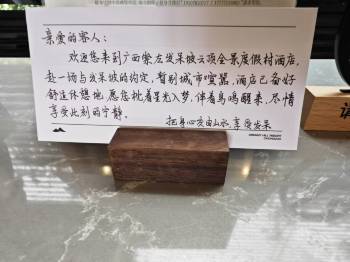 亲爱的客人：
欢迎您来到广西崇左发呆坡云顶全景度假村酒店，
赴一场与发呆坡的约定，暂别城市喧嚣，酒店已备好
舒适休憩地，愿您枕着星光入梦，伴着鸟鸣醒来，尽情
享受此刻的宁静。
把身心交由山水，享受发呆